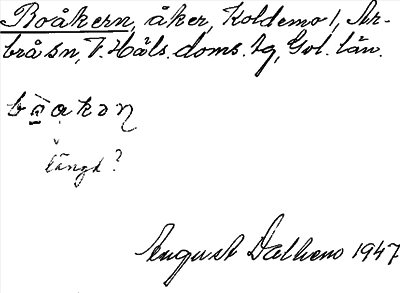 Boåkern, åker, Koldemo 1, Ar-
brå sn, V. Häls. doms. tg, Gvl. län.
bōɑkəɳ
längd?
August Dalhem 1947